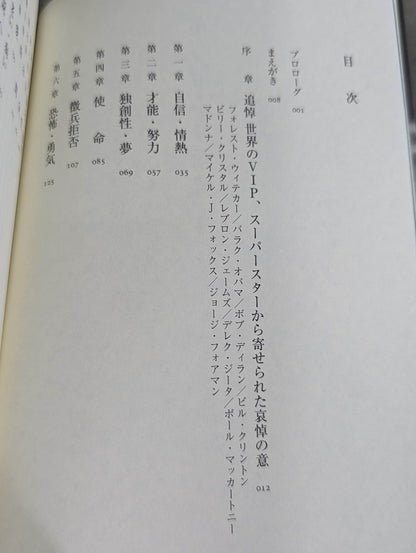 目次
プロローグ 001
まえがき 008
序章 追悼 世界のVIP、スーパースターから寄せられた哀悼の意 012
フォレスト・ウィテカー/バラク・オバマ/ボブ・ディラン/ビル・クリントン
ビリー・クリスタル/レブロン・ジェームズ/デレク・ジータ/ポール・マッカートニー
マドンナ/マイケル・J・フォックス/ジョージ・フォアマン
第一章 自信・情熱 035
第二章 才能・努力 057
第三章 独創性・夢 069
第四章 使命 085
第五章 徴兵拒否 107
第六章 恐怖・勇気 125